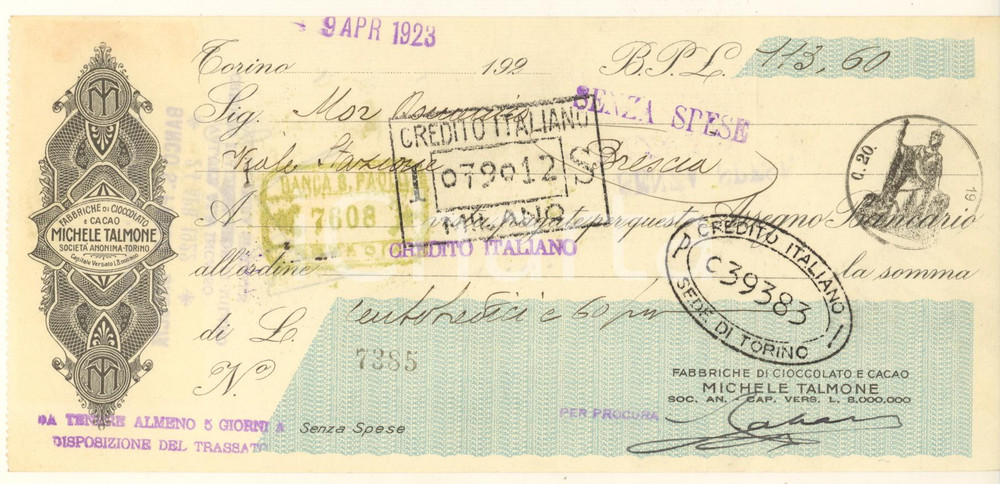 9 APR 1923
Torino 192
B.P.L. 113,60
Sig. Mor
SENZA SPESE
CREDITO ITALIANO
079012
MILANO
Viale Stazione Brescia
BANCA S. PAOLO
7608
C. 20.
19
A pagate per questo Assegno Bancario
CREDITO ITALIANO
all'ordine la somma
CREDITO ITALIANO
C39383
SEDE DI TORINO
di L. Centotredici e 60
No 7385
FABBRICHE DI CIOCCOLATO
E CACAO
MICHELE TALMONE
SOCIETÀ ANONIMA-TORINO
FABBRICHE DI CIOCCOLATO E CACAO
MICHELE TALMONE
SOC. AN. - CAP. VERS. L. 8,000,000
PER PROCURA
DA TENERE ALMENO 5 GIORNI A
DISPOSIZIONE DEL TRASSATO
Senza Spese